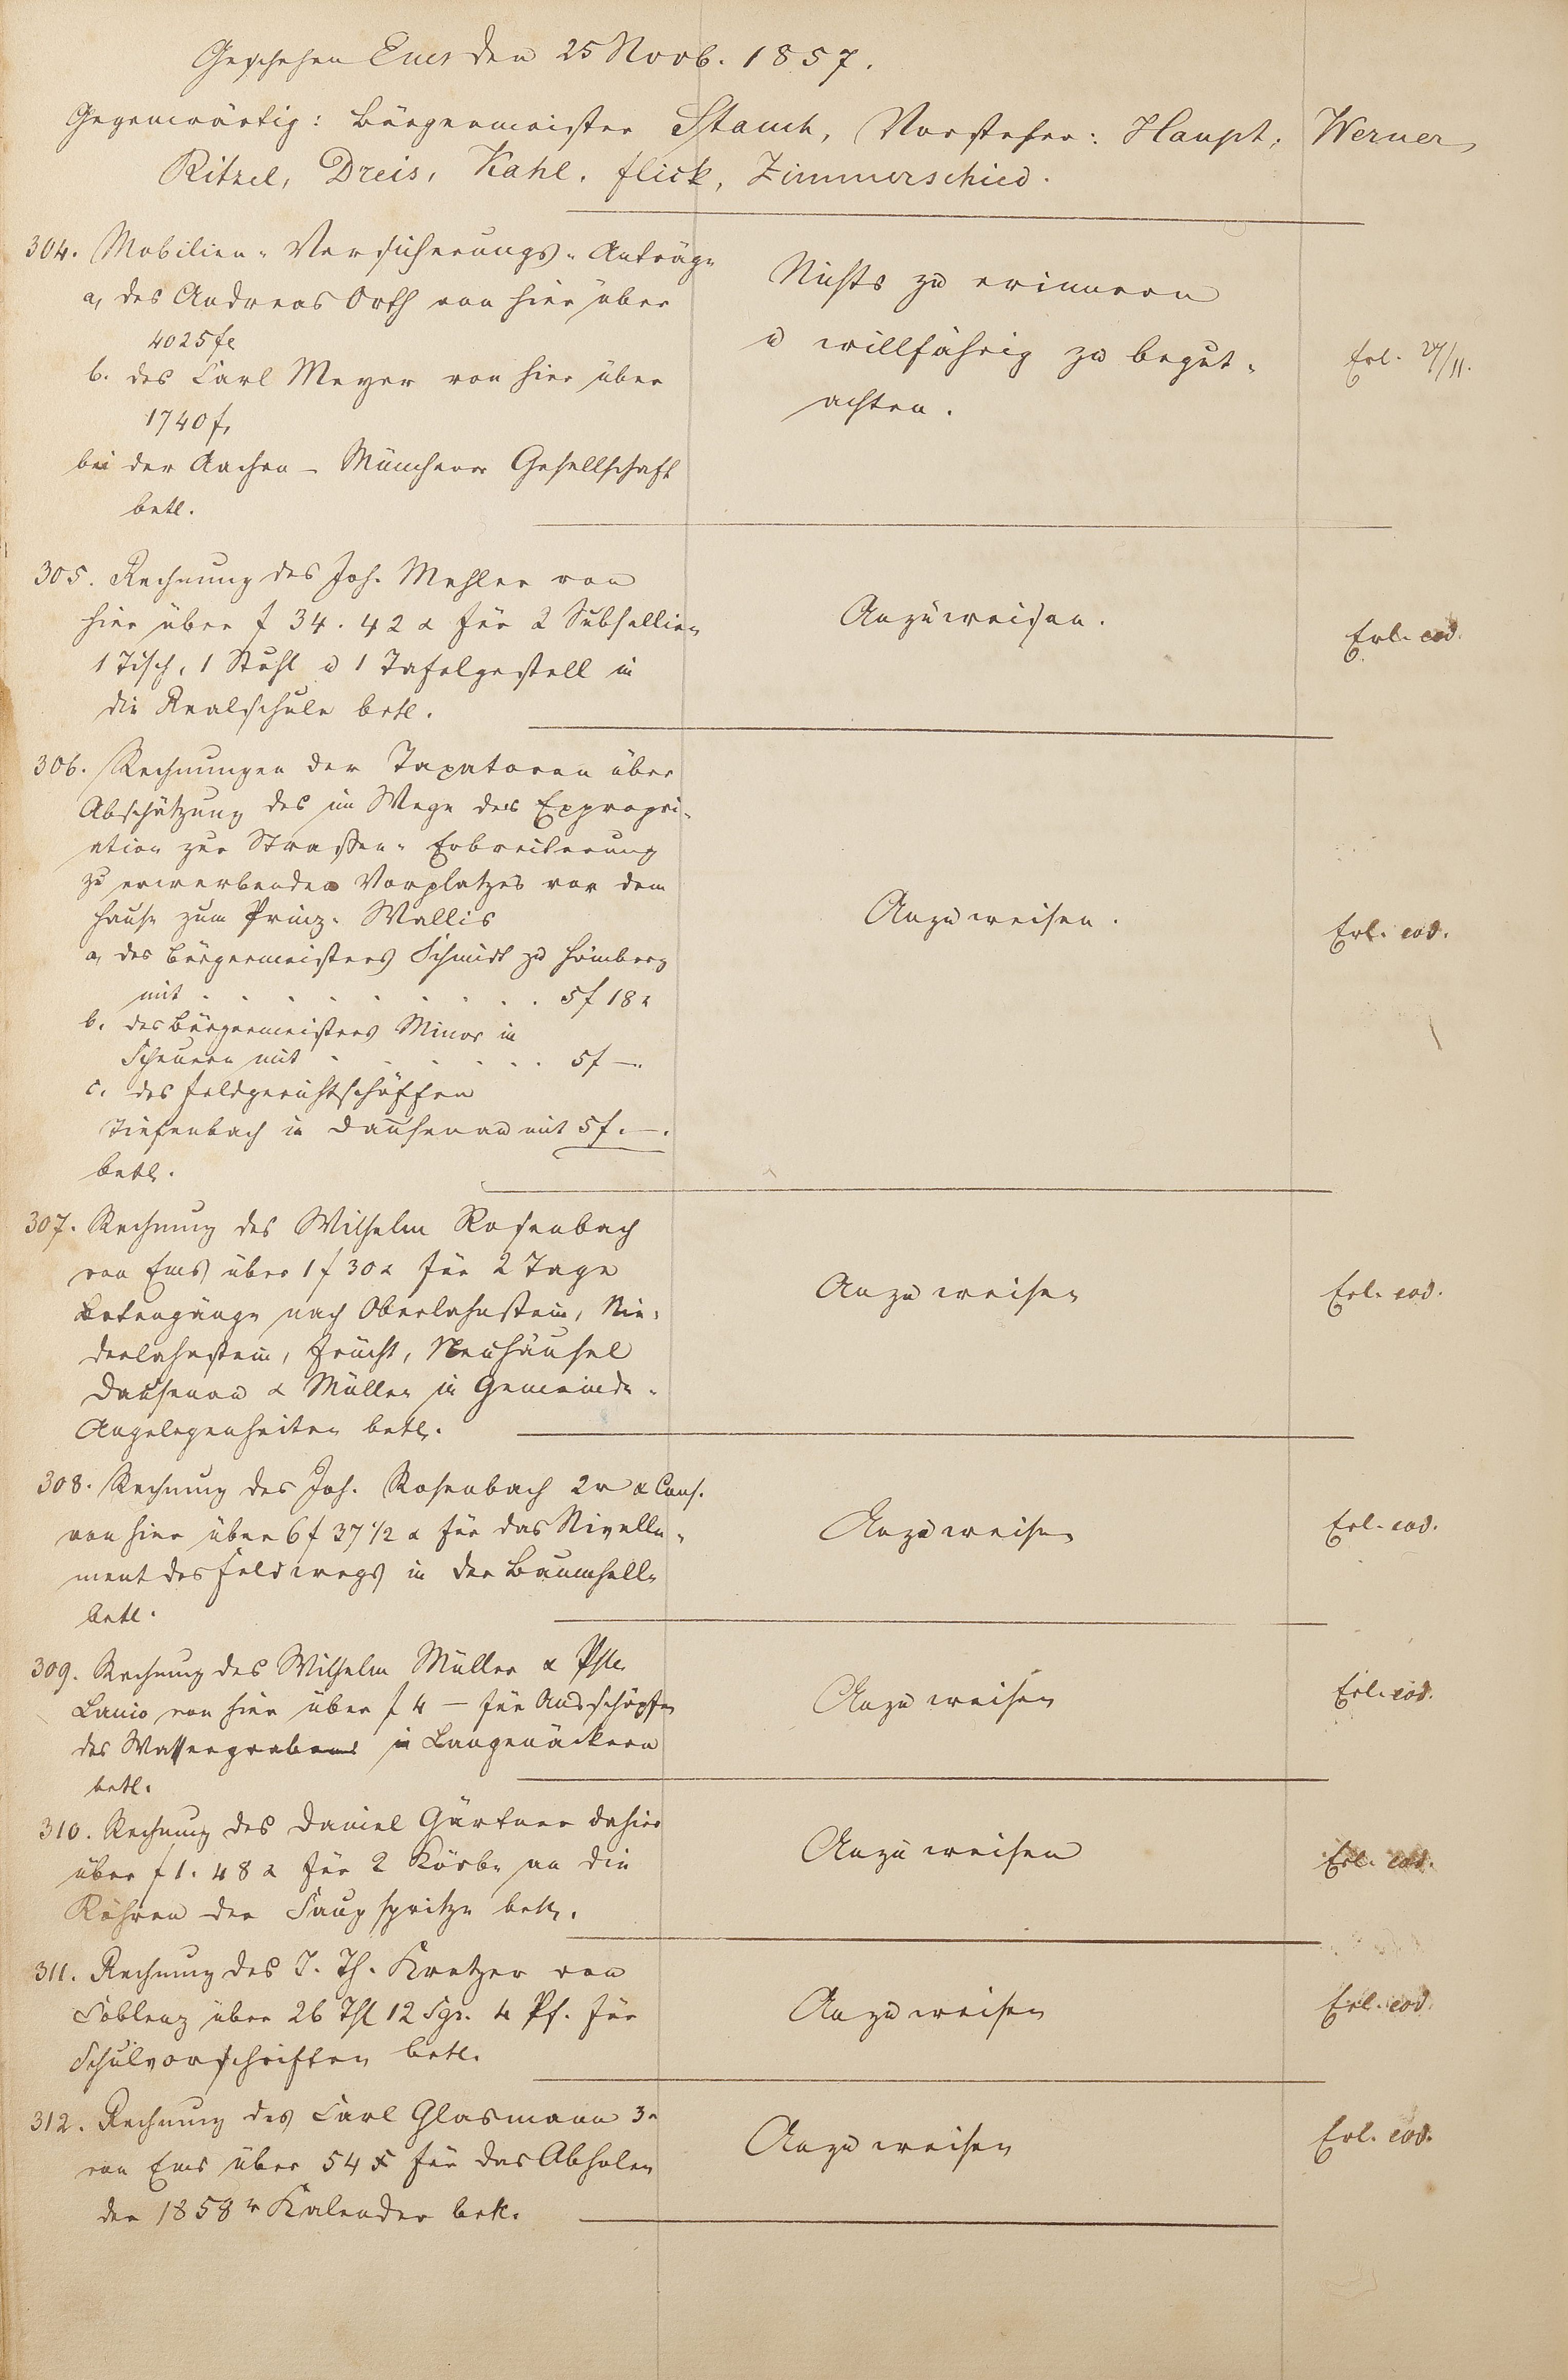 Geschehen Ems den 25 Novb. 1857.
Gegenwärtig: Bürgermeister Stauch, Vorsteher: Haupt, Werner,
Ritzel, Dreis, Kahl, Flick, Zimmerschied.
304. Mobilien-Versicherungs-Anträge
a, des Andreas Orth von hier über
4025 f
b. des Carl Meyer von hier über
1740 f,
bei der Aachen-Münchener Gesellschaft
betr.
Nichts zu erinnern
u willfährig zu begut-
achten.
Erl. 27/11.
305. Rechnung des Joh. Mehler von
hier über f 34. 42 x für 2 Subsellien
1 Tisch, 1 Stuhl u 1 Tafelgestell in
die Realschule betr.
Anzuweisen.
Erl. eod.
306. Rechnungen der Taxatoren über
Abschätzung des im Wege der Expropri-
ation zur Straßen-Erbreiterung
zu erwerbenden Vorplatzes vor dem
Hause zum Prinz. Wallis
a, des Bürgermeisters Schmidt zu Hömberg
mit . . . . . . . . . 5 f 18 x
b. des Bürgermeisters Minor in
Scheuern mit . . . . . . 5 f —.
c. des Feldgerichtschöffen
Tiefenbach in Dausenau mit 5 f. —.
betr.
Anzuweisen.
Erl. eod.
307. Rechnung des Wilhelm Rosenbach
von Ems über 1 f 30 x für 2 Tage
Botengänge nach Oberlahnstein, Nie-
derlahnstein, Frücht, Neuhäusel
Dausenau & Müllen in Gemeinde-
Angelegenheiten betr.
Anzuweisen
Erl. eod.
308. Rechnung des Joh. Rosenbach 2r & Cons.
von hier über 6 f 37 1/2 x für das Nivelle-
ment des Feldwegs in der Baumhelle
betr.
Anzuweisen
Erl. eod.
309. Rechnung des Wilhelm Müller &
Lanio von hier über f 4 — für Ausschöpfen
des Wassergrabens in Langenäckern
betr.
Anzuweisen
Erl. eod.
310. Rechnung des Daniel Gärtner dahier
über f 1. 48 x für 2 Körbe an die
Röhren der Saugspritze betr.
Anzuweisen
Erl. eod.
311. Rechnung des J. Th. Kretzer von
Coblenz über 26 Thl 12 Sgr. 4 Pf. für
Schulvorschriften betr.
Anzuweisen
Erl. eod.
312. Rechnung des Carl Glasmann 3r
von Ems über 54 x für das Abholen
der 1858r Kalender betr.
Anzuweisen
Erl. eod.